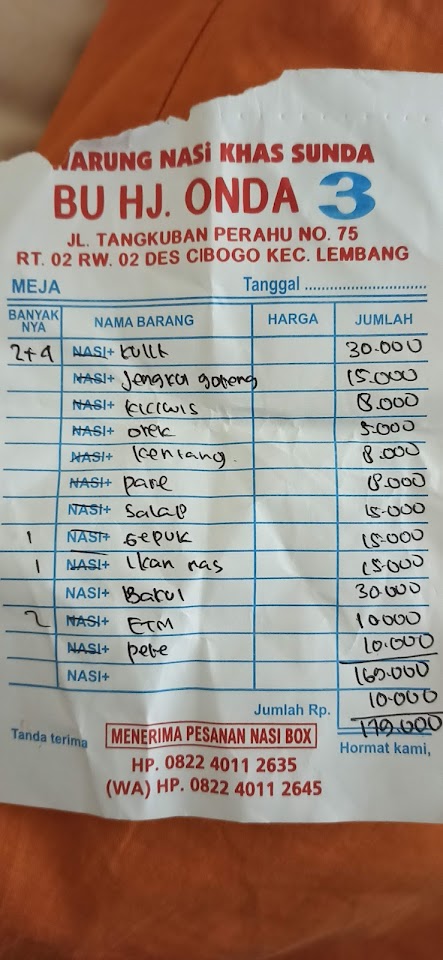 WARUNG NASI KHAS SUNDA
BU HJ. ONDA 3
JL. TANGKUBAN PERAHU NO. 75
RT. 02 RW. 02 DES CIBOGO KEC. LEMBANG
MEJA Tanggal ..............................
BANYAK NYA NAMA BARANG HARGA JUMLAH
2+4 NASI+ Kulit 30.000
NASI+ Jengkol goreng 15.000
NASI+ kiciwis 8.000
NASI+ orek 5.000
NASI+ kentang 8.000
NASI+ pare 8.000
NASI+ 15.000
1 NASI+ Gepuk 15.000
1 NASI+ Ikan mas 15.000
NASI+ Bakul 30.000
2 NASI+ ETM 10.000
NASI+ pete 10.000
NASI+ 169.000
10.000
Jumlah Rp. 179.000
Tanda terima MENERIMA PESANAN NASI BOX Hormat kami,
HP. 0822 4011 2635
(WA) HP. 0822 4011 2645